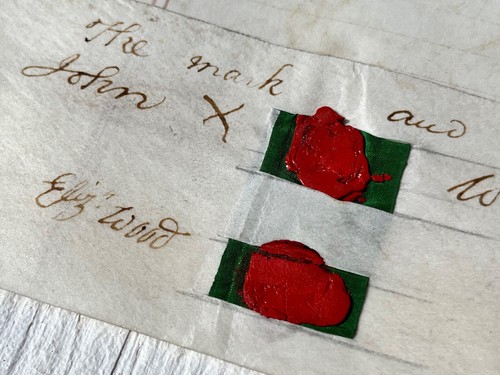 The mark and
John X W
Eliz: Wood